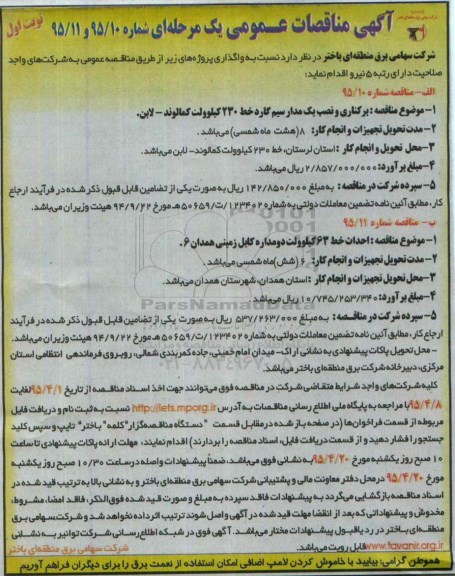 آگهی مناقصات عمومی یک مرحله‌ای شماره ۹۵/۱۰ و ۹۵/۱۱
نوبت اول
شرکت سهامی برق منطقه‌ای باختر در نظر دارد نسبت به واگذاری پروژه‌های زیر از طریق مناقصه عمومی به شرکت‌های واجد
صلاحیت دارای رتبه ۵ نیرو اقدام نماید:
الف- مناقصه شماره ۹۵/۱۰
۱- موضوع مناقصه: برکناری و نصب یک مدار سیم گارد خط ۲۳۰ کیلوولت کمالوند - لابن.
۲- مدت تحویل تجهیزات و انجام کار: ۸ (هشت ماه شمسی) می‌باشد.
۳- محل تحویل و انجام کار: استان لرستان، خط ۲۳۰ کیلوولت کمالوند- لابن می‌باشد.
۴- مبلغ برآورد: ۲/۸۵۷/۰۰۰/۰۰۰ ریال می‌باشد.
۵- سپرده شرکت در مناقصه: به مبلغ ۱۴۲/۸۵۰/۰۰۰ ریال به صورت یکی از تضامین قابل قبول ذکر شده در فرآیند ارجاع
کار، مطابق آئین نامه تضمین معاملات دولتی به شماره ۱۲۳۴۰۲/ت۵۰۶۵۹هـ مورخ ۹۴/۹/۲۲ هیئت وزیران می‌باشد.
ب- مناقصه شماره ۹۵/۱۱
۱- موضوع مناقصه: احداث خط ۶۳ کیلوولت دومداره کابل زمینی همدان ۶.
۲- مدت تحویل تجهیزات و انجام کار: ۶ (شش) ماه شمسی می‌باشد.
۳- محل تحویل تجهیزات و انجام کار: استان همدان، شهرستان همدان می‌باشد.
۴- مبلغ برآورد: ۱۰/۷۴۵/۲۵۳/۳۴۰ ریال می‌باشد
۵- سپرده شرکت در مناقصه: به مبلغ ۵۳۷/۲۶۳/۰۰۰ ریال به صورت یکی از تضامین قابل قبول ذکر شده در فرآیند
ارجاع کار، مطابق آئین نامه تضمین معاملات دولتی به شماره ۱۲۳۴۰۲/ت۵۰۶۵۹هـ مورخ ۹۴/۹/۲۲ هیئت وزیران می‌باشد.
- محل تحویل پاکات پیشنهادی به نشانی اراک- میدان امام خمینی، جاده کمربندی شمالی، روبروی فرماندهی انتظامی استان
مرکزی، دبیرخانه شرکت برق منطقه‌ای باختر می‌باشد.
کلیه شرکت‌های واجد شرایط متقاضی شرکت در مناقصه فوق می‌توانند جهت اخذ اسناد مناقصه از تاریخ ۹۵/۴/۱ لغایت
۹۵/۴/۸ با مراجعه به پایگاه ملی اطلاع رسانی مناقصات به آدرس http://iets.mporg.ir نسبت به ثبت نام و دریافت فایل
مربوطه از قسمت فراخوان‌ها (در صفحه باز شده در مقابل قسمت "دستگاه مناقصه‌گزار" کلمه "باختر" تایپ و سپس کلید
جستجو را فشار دهید و از قسمت دریافت فایل، اسناد مناقصه را بردارند) اقدام نمایند، مهلت ارائه پاکات پیشنهادی تا ساعت
۱۰ صبح روز یکشنبه مورخ ۹۵/۴/۲۰ به نشانی فوق می‌باشد، ضمناً پیشنهادات واصله در ساعت ۱۰/۳۰ صبح روز یکشنبه
مورخ ۹۵/۴/۲۰ در محل دفتر معاونت مالی و پشتیبانی شرکت سهامی برق منطقه‌ای باختر و به نشانی بالا به ترتیب قید شده در
اسناد مناقصه بازگشایی می‌گردد به پیشنهادات فاقد سپرده به مبلغ و صورت قید شده فوق‌الذکر، فاقد امضا، مشروط،
مخدوش و پیشنهاداتی که بعد از انقضا مهلت قید شده در آگهی و اصل شوند ترتیب اثر داده نخواهد شد و شرکت سهامی برق
منطقه‌ای باختر در رد یا قبول پیشنهادات مختار می‌باشد. آگهی فوق در شبکه اطلاع رسانی شرکت توانیر به نشانی
www.tavanir.org.ir قابل رویت می‌باشد.
شرکت سهامی برق منطقه‌ای باختر
هموطن گرامی: بیایید با خاموش کردن لامپ اضافی امکان استفاده از نعمت برق را برای دیگران فراهم آوریم